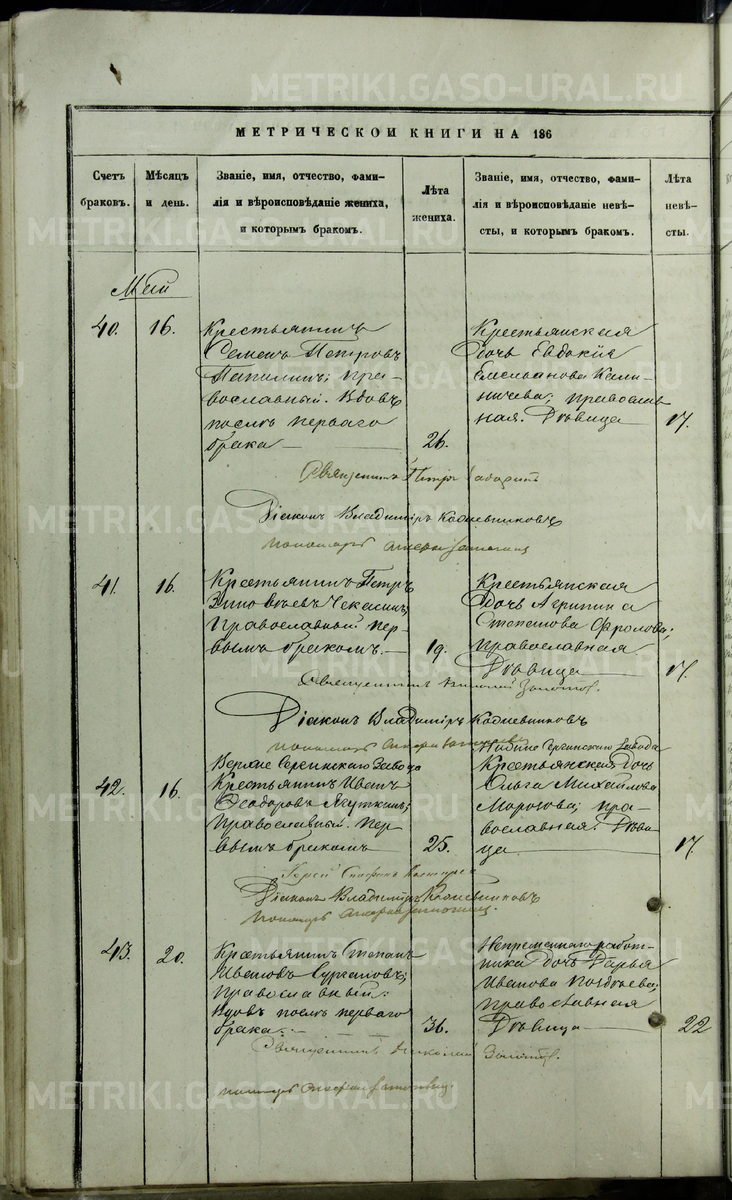 МЕТРИЧЕСКОЙ КНИГИ НА 186
Счетъ браковъ.
Мѣсяцъ и день.
Званіе, имя, отчество, фами-
лія и вѣроисповѣданіе жениха,
и которымъ бракомъ.
Лѣта жениха.
Званіе, имя, отчество, фами-
лія и вѣроисповѣданіе невѣ-
сты, и которымъ бракомъ.
Лѣта невѣ-
сты.
Май
40.
16.
Крестьянинъ
Семенъ Петровъ
пра-
вославный. Вдовъ
послѣ перваго
брака
26.
Крестьянская
дочь Евдокія
Емельянова Кали-
ничева; православ-
ная. Дѣвица
17.
Священникъ Петръ
Діаконъ Владиміръ Кадшевниковъ
пономарь
41.
16.
Крестьянинъ Петръ
Зиновьевъ Чекасинъ;
православный. пер-
вымъ бракомъ.
19.
Крестьянская
дочь Агрипина
Степанова Фролова;
православная
Дѣвица
17.
Священникъ Николай Золотовъ.
Діаконъ Владиміръ Кадшевниковъ
пономарь
42.
16.
Верхне Сергинскаго Завода
Крестьянинъ Иванъ
Ѳеодоровъ
православный. пер-
вымъ бракомъ
25.
Нижне Сергинскаго Завода
Крестьянская дочь
Ольга Михайлова
Морозова; пра-
вославная. Дѣви-
ца
17
Іерей Стефанъ
Діаконъ Владиміръ Кадшевниковъ
пономарь
43.
20.
Крестьянинъ Степанъ
Ивановъ
православный:
вдовъ послѣ перваго
брака.
36.
Непремѣннаго работ-
ника дочь Дарья
Иванова
православная
Дѣвица
22
Священникъ Николай Золотовъ.
пономарь
METRIKI.GASO-URAL.RU